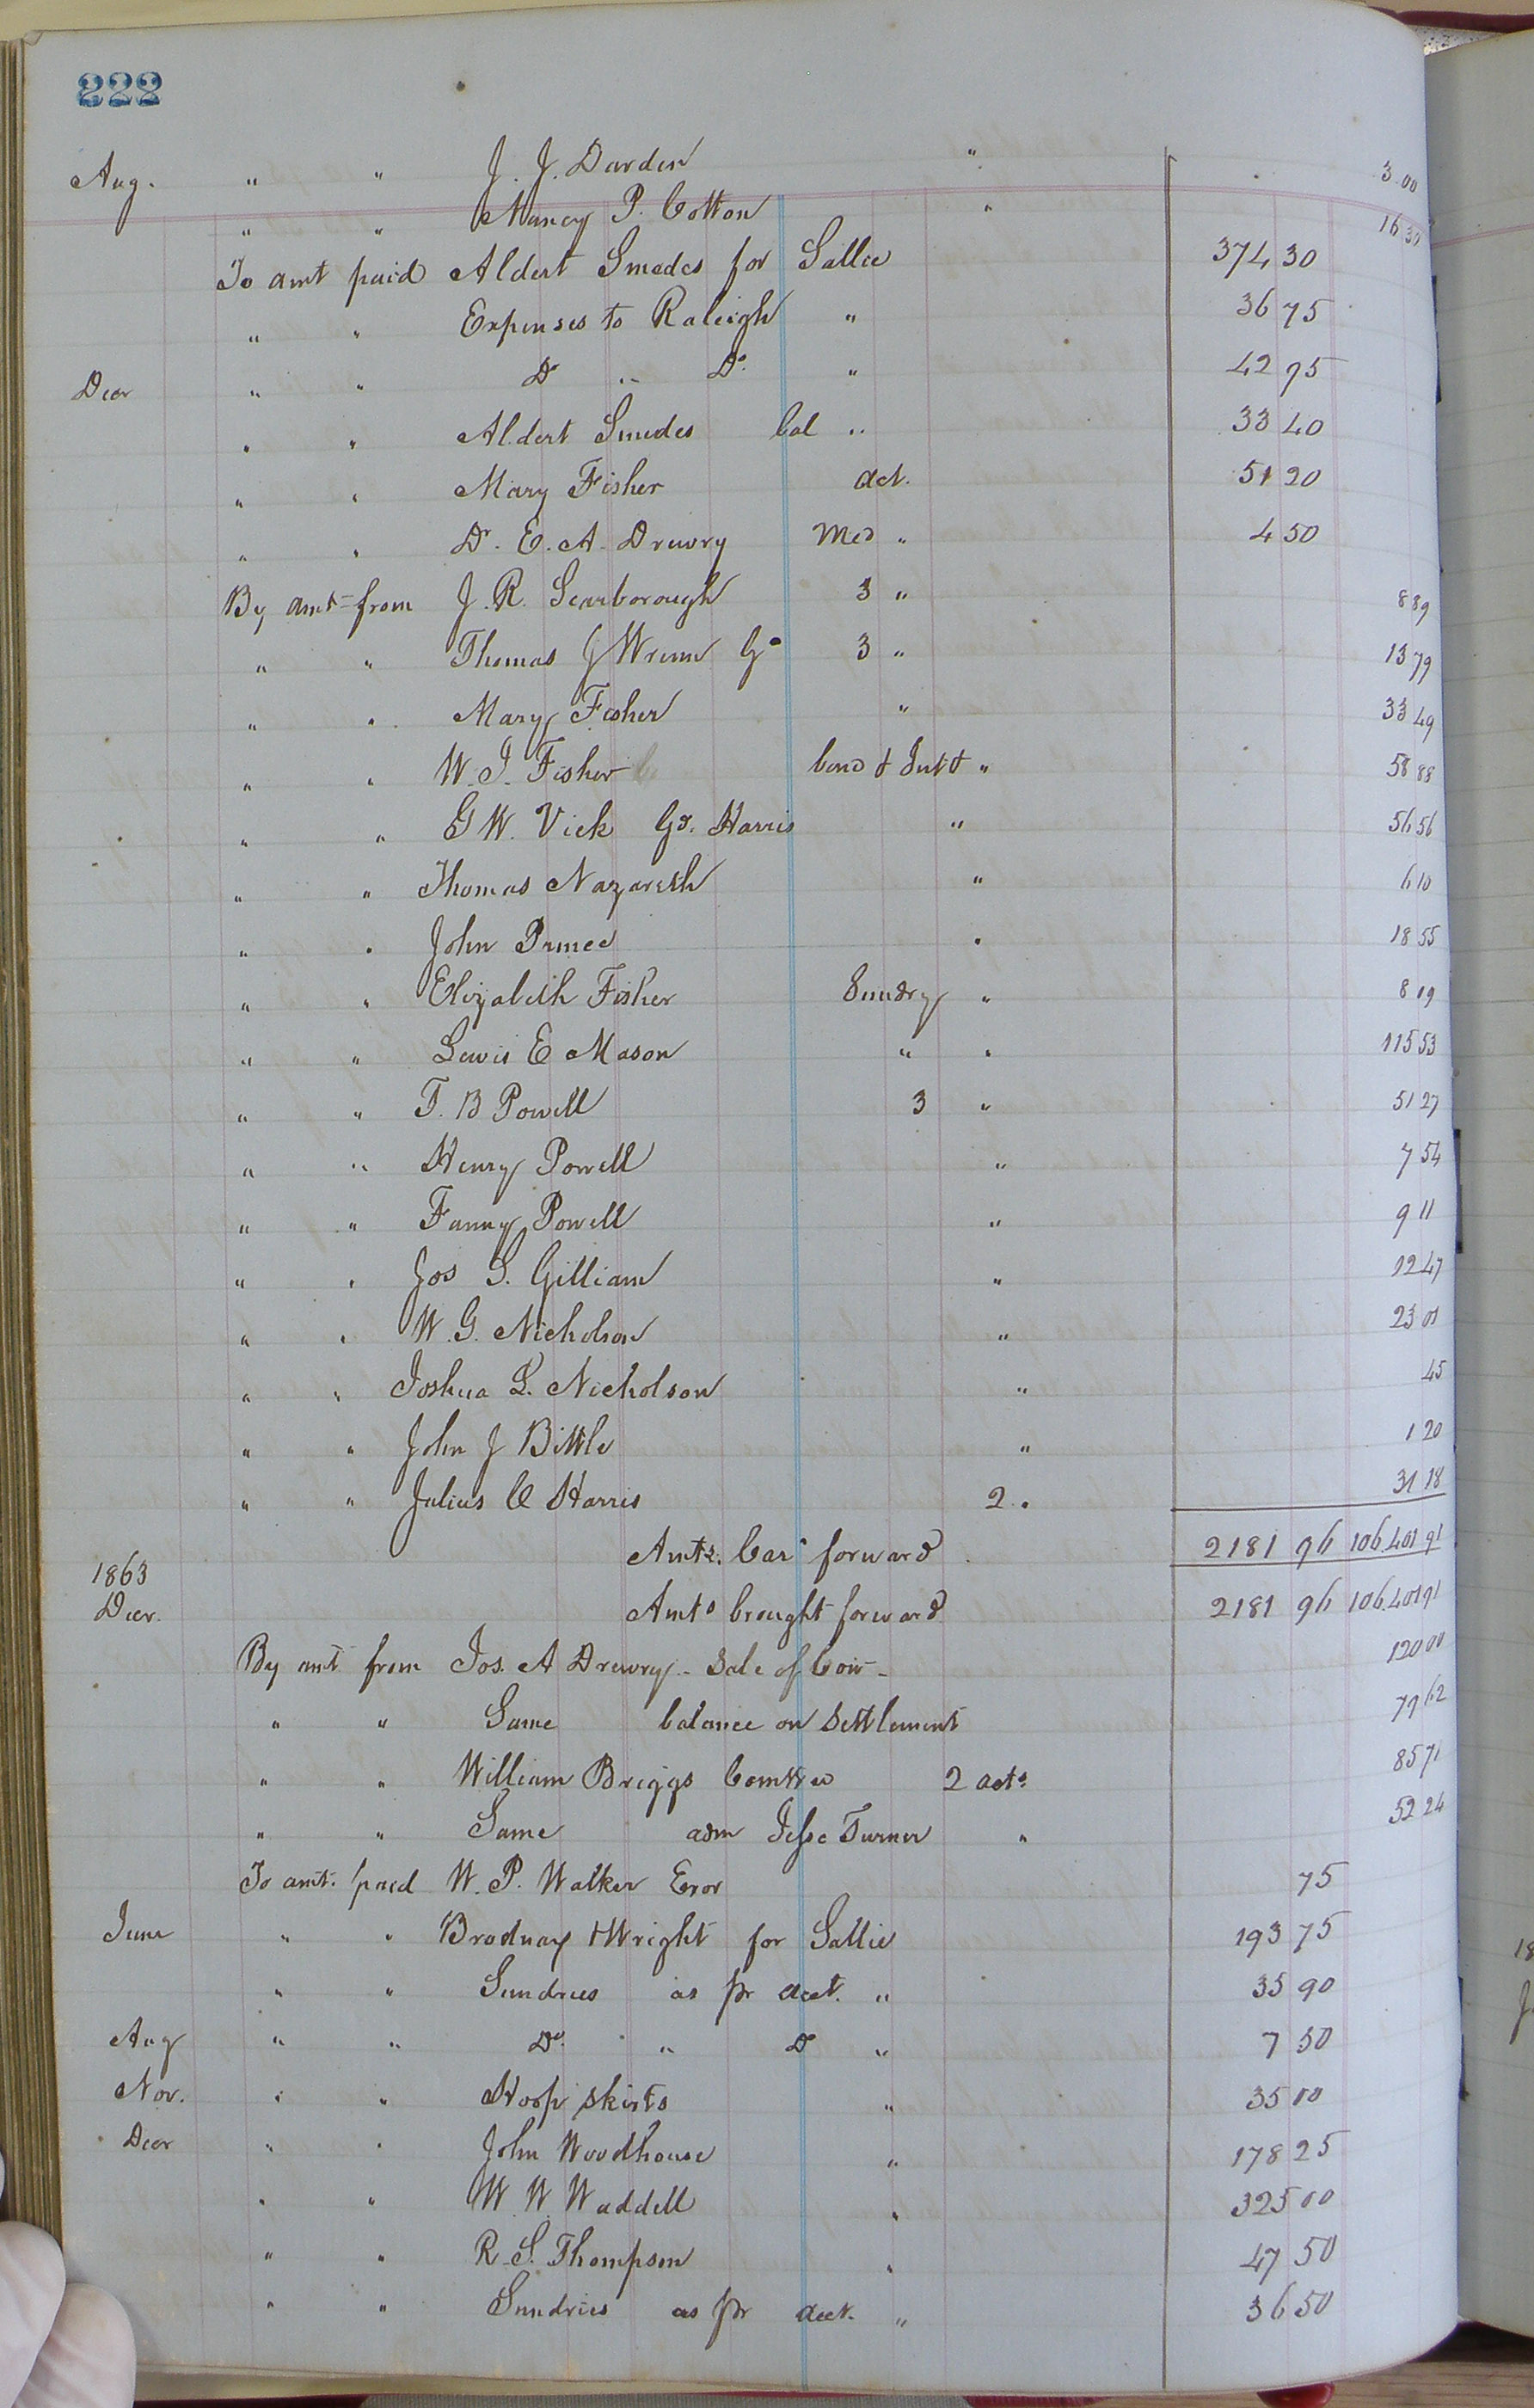 222
Aug. " " J. J. Darden " 3 00
" " Nancy P. Cotton " 16 30
To amt paid Aldert Smedes for Sallie 374 30
" " Expenses to Raleigh " 36 75
Decr " " Do " Do. " 42 75
" " Aldert Smedes bal " 33 40
" " Mary Fisher act. 51 20
" " Dr. E. A. Drewry Med " 4 50
By amt from J. R. Scarborough 3 " 8 89
" " Thomas J Wrenn Gd 3 " 13 79
" " Mary Fisher " 33 49
" " W. J. Fisher bond & Intt " 58 88
" " G W. Vick Gd. Harris " 56 56
" " Thomas Nazareth " 6 10
" " John Prince " 18 55
" " Elizabeth Fisher Sundry " 8 09
" " Lewis E Mason " " 115 53
" " T. B Powell 3 " 51 27
" " Henry Powell " 7 54
" " Fanny Powell " 9 11
" " Jos S. Gilliam " 12 47
" " W. G. Nicholson " 23 01
" " Joshua L. Nicholson " 45
" " John J Bittle " 1 20
" " Julius C Harris 2 " 31 18
Amts. Car forward 2181 96 106.401 91
1863
Decr. Amts brought forward 2181 96 106.401 91
By amt from Jos. A Drewry - Sale of Cow - 120 00
" " Same balance on Settlement 79 62
" " William Briggs Comttee 2 acts 85 71
" " Same adm Jesse Turner " 52 24
To amt. paid W. P. Walker Eror 75
June " " Brodnay & Wright for Sallie 193 75
" " Sundries as pr acct. " 35 90
Aug " " Do. " Do " 7 50
Nov. " " Hoop skirts " 35 00
Decr " " John Woodhouse " 178 25
" " W. W. Waddell " 325 00
" " R. S. Thompson " 47 50
" " Sundries as pr acct. " 36 50